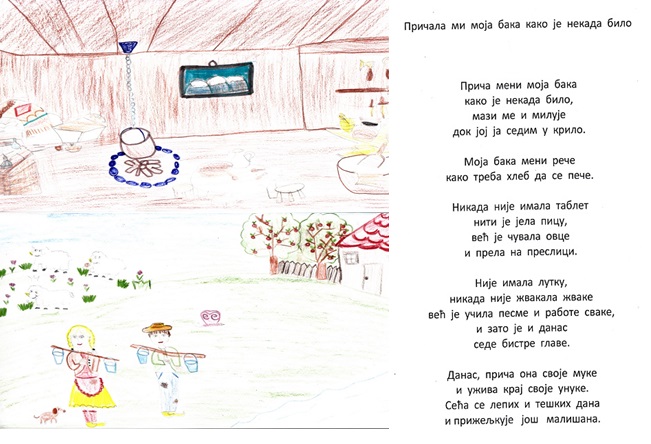 Причала ми моја бака како је некада било
Прича мени моја бака
како је некада било,
мази ме и милује
док јој ја седим у крило.
Моја бака мени рече
како треба хлеб да се пече.
Никада није имала таблет
нити је јела пицу,
већ је чувала овце
и прела на преслици.
Није имала лутку,
никада није жвакала жваке
већ је учила песме и работе сваке,
и зато је и данас
седе бистре главе.
Данас, прича она своје муке
и ужива крај своје унуке.
Сећа се лепих и тешких дана
и прижељкује још малишана.